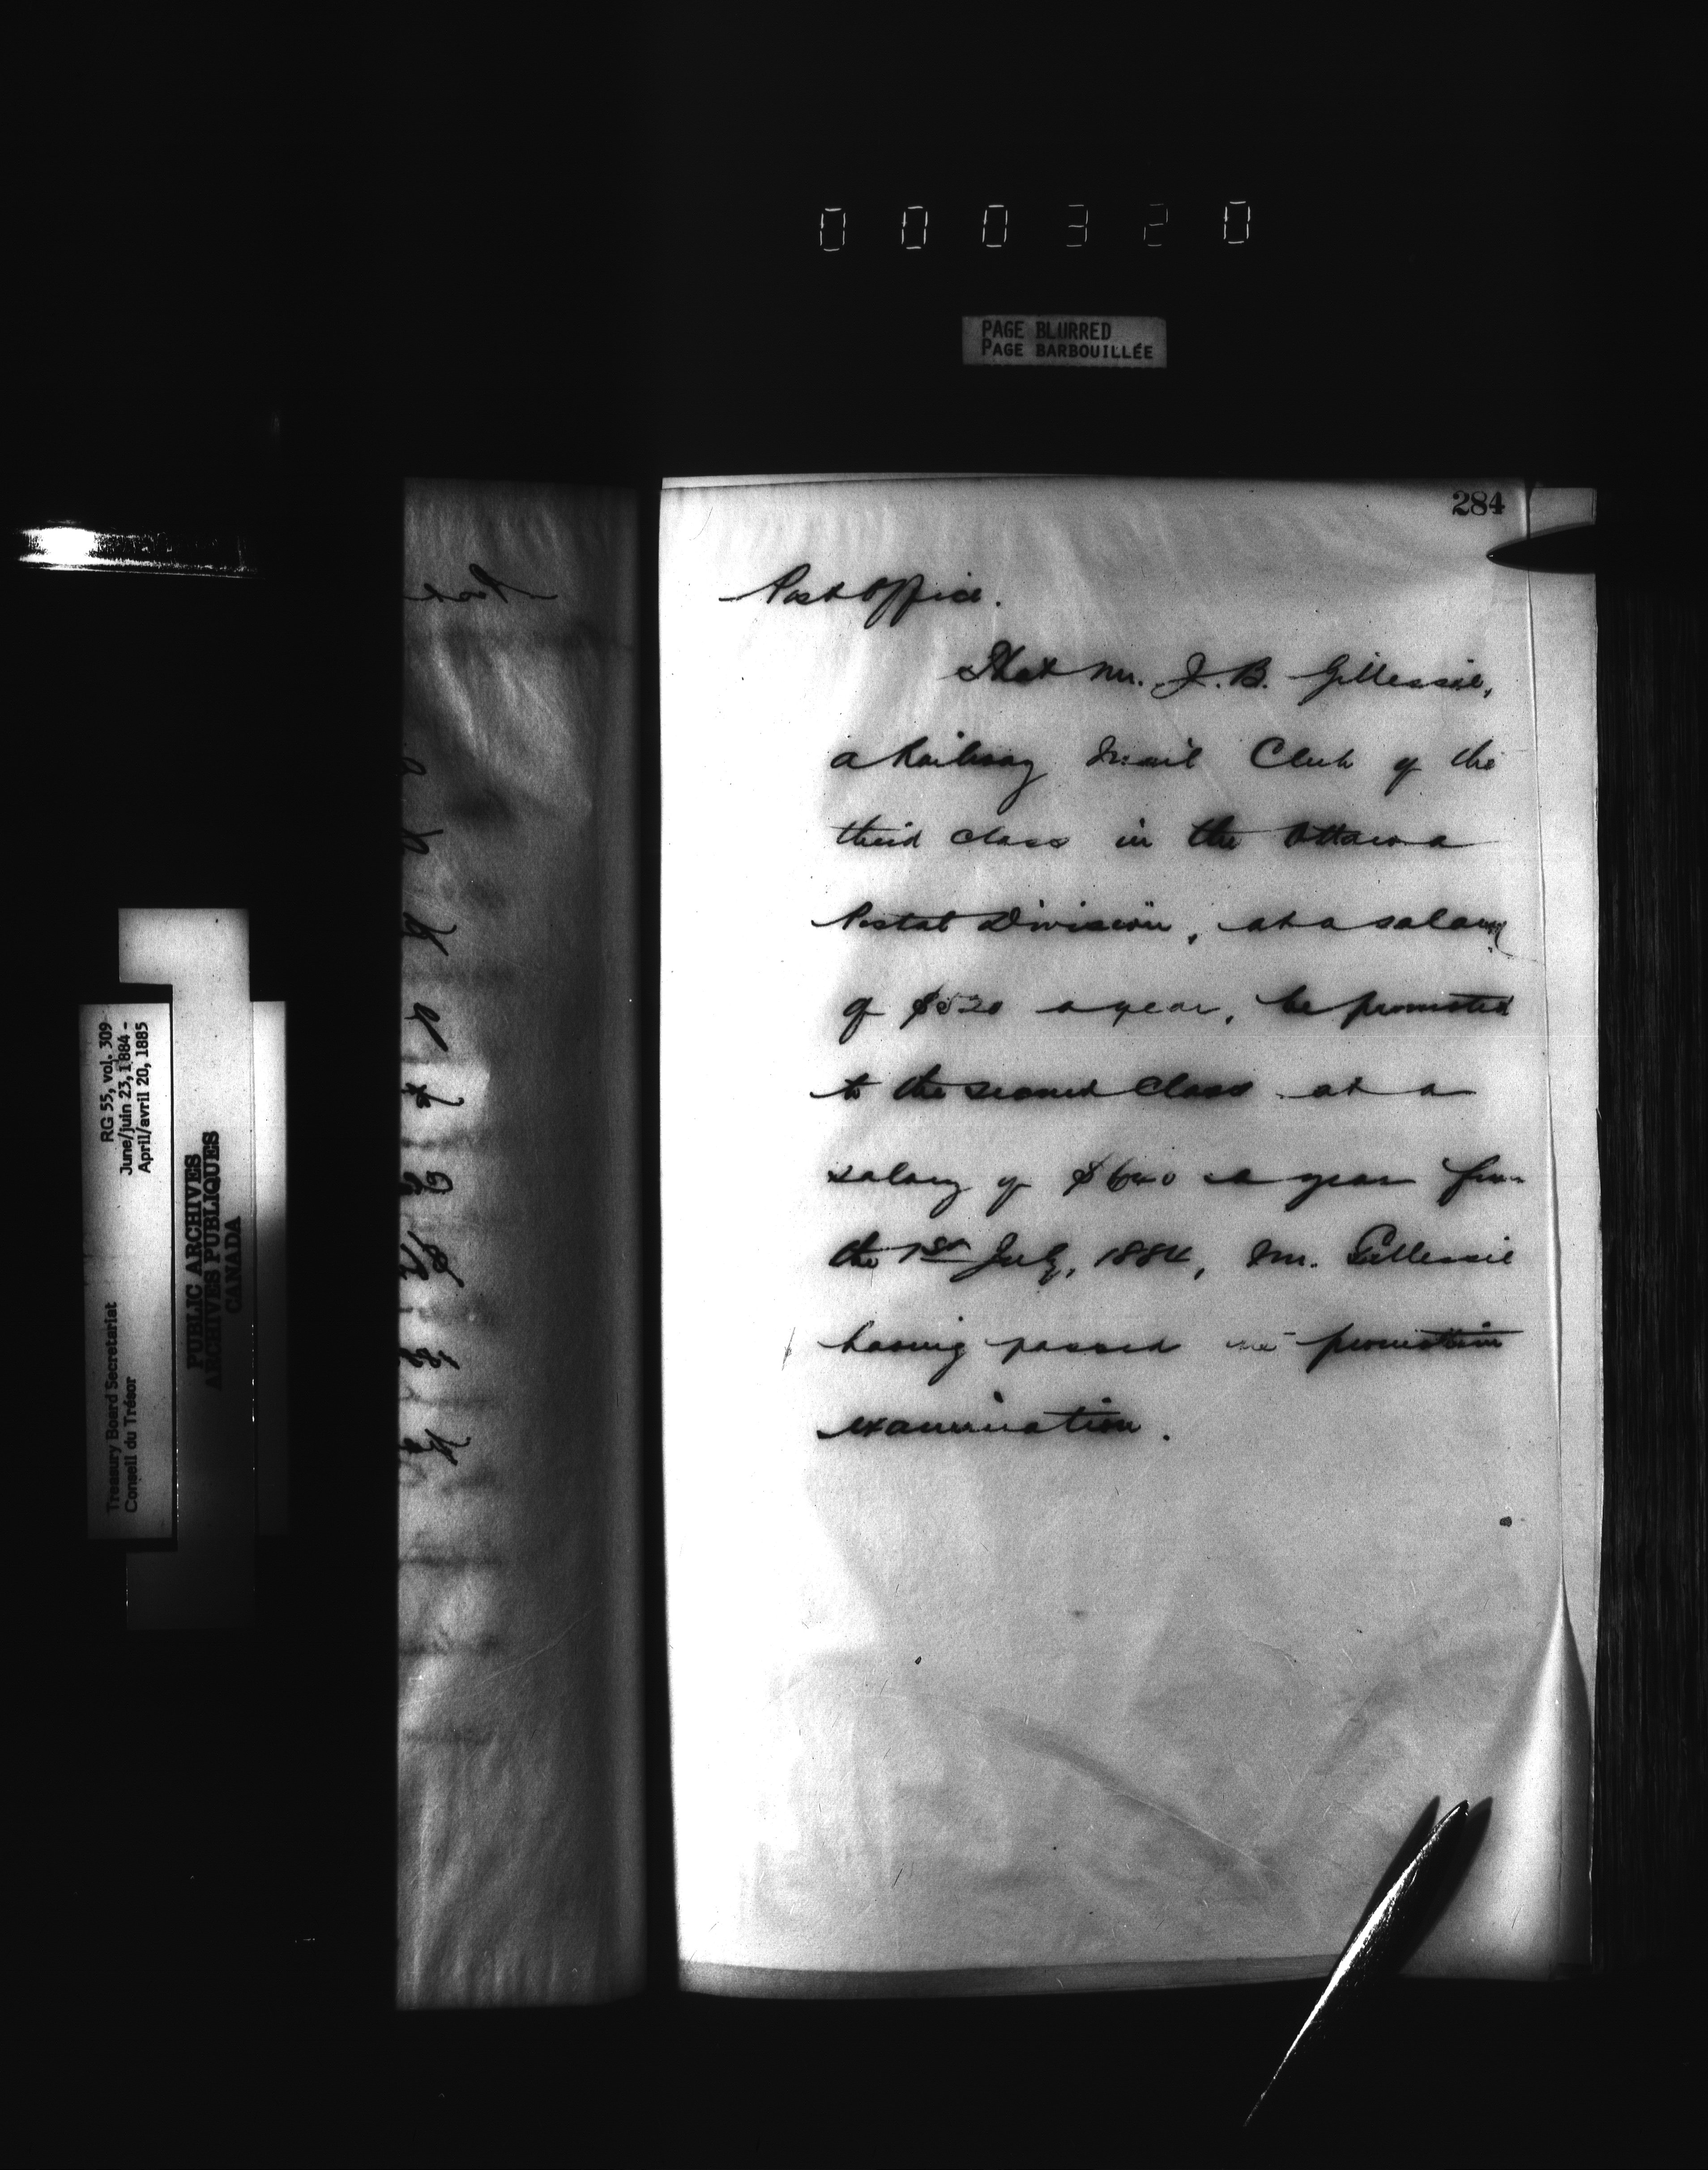 000320
PAGE BLURRED
PAGE BARBOUILLÉE
284
Post Office.
That Mr. J. B. Gillessie,
a Railway Mail Clerk of the
third class in the Ottawa
Postal Division, at a salary
of $520 a year, be promoted
to the second Class at a
salary of $640 a year from
the 1st July, 1884, Mr. Gillessie
having passed the promotion
examination.
RG 55, vol. 309
June/juin 23, 1884 -
April/avril 20, 1885
Treasury Board Secretariat
Conseil du Trésor
PUBLIC ARCHIVES
ARCHIVES PUBLIQUES
CANADA